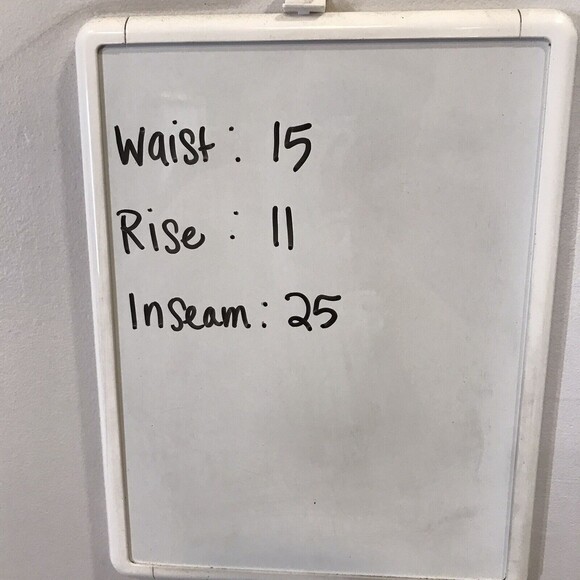 Waist: 15
Rise: 11
Inseam: 25